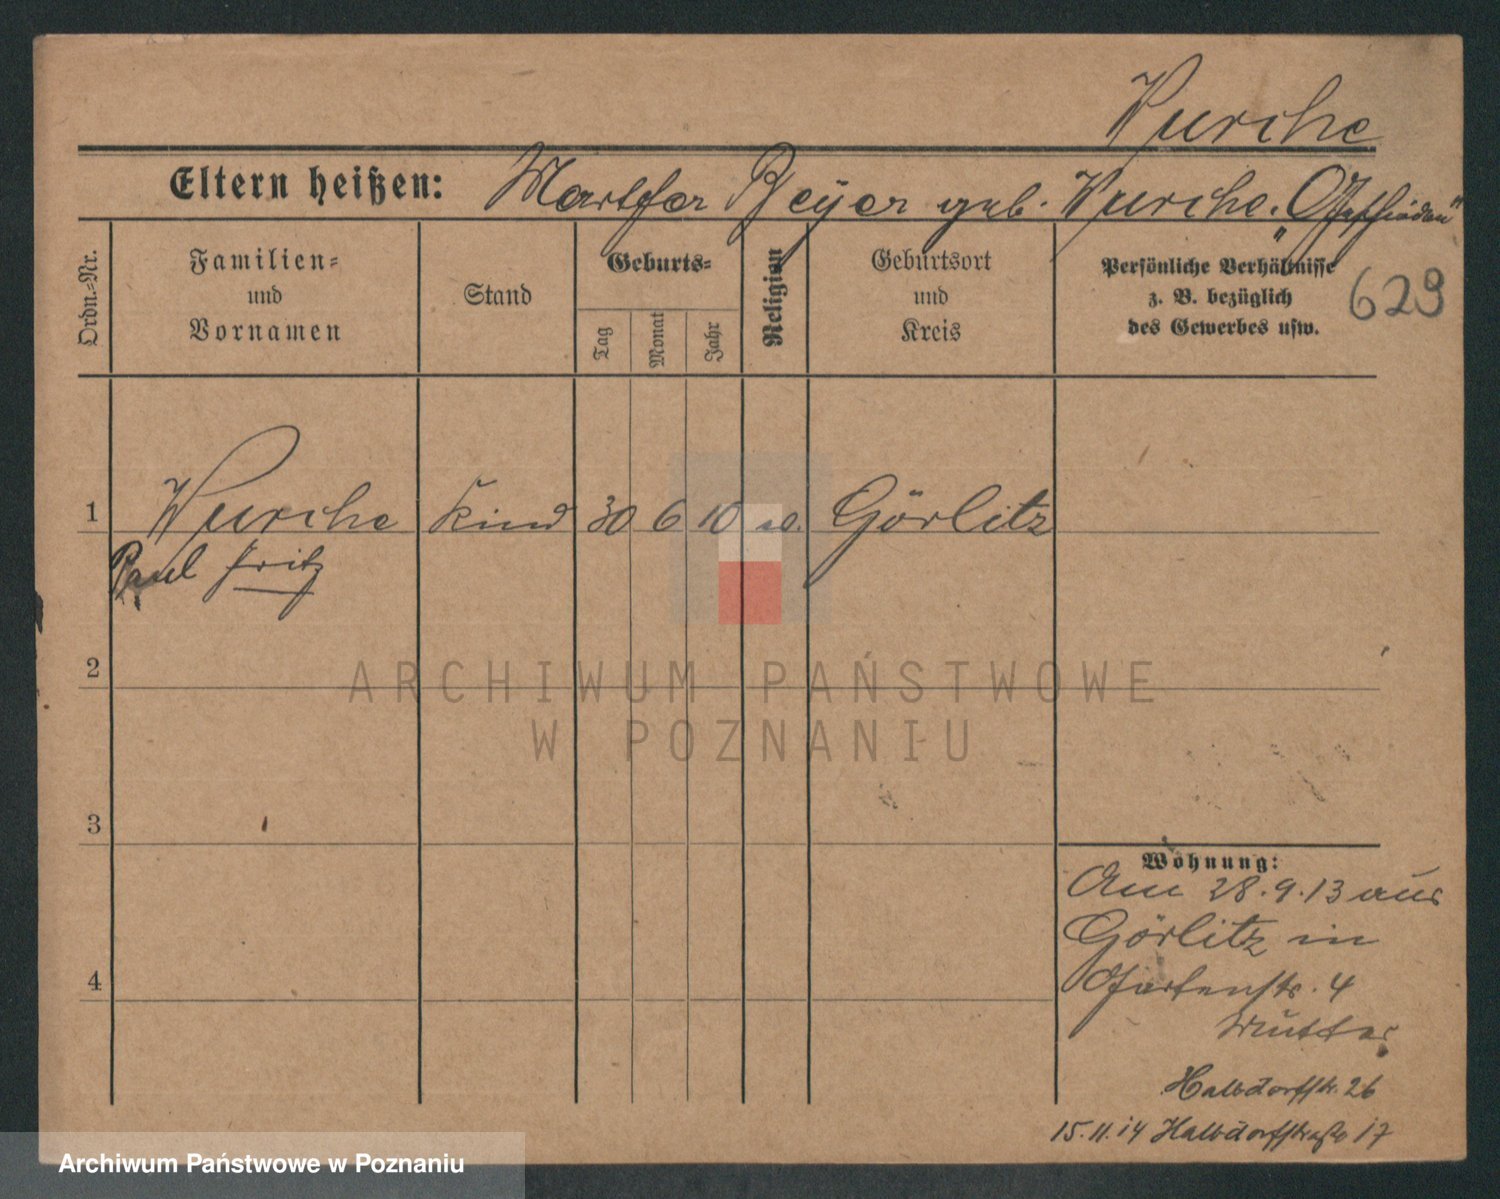 Wursche
Eltern heißen: Beyer geb. Wursche. „Geschieden"
Ordn.-Nr.
Familien-
und
Vornamen
Stand
Geburts-
Tag
Monat
Jahr
Religion
Geburtsort
und
Kreis
Persönliche Verhältnisse
z. B. bezüglich
des Gewerbes usw.
629
1 Wursche Kind 30 6 10 ev. Görlitz
Paul Fritz
2
3
4
Wohnung:
Am 28.9.13 aus
Görlitz in
Gartenstr. 4
Mutter
Halbdorfstr. 26
15.11.14 Halbdorfstraße 17
ARCHIWUM PAŃSTWOWE
W POZNANIU
Archiwum Państwowe w Poznaniu